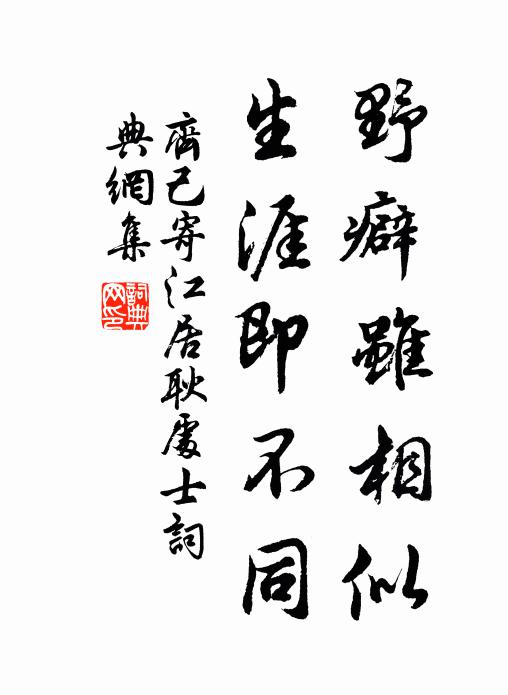 野癖雖相似
生涯即不同
齊己寄江居耿處士詞
典網集
詞典網印